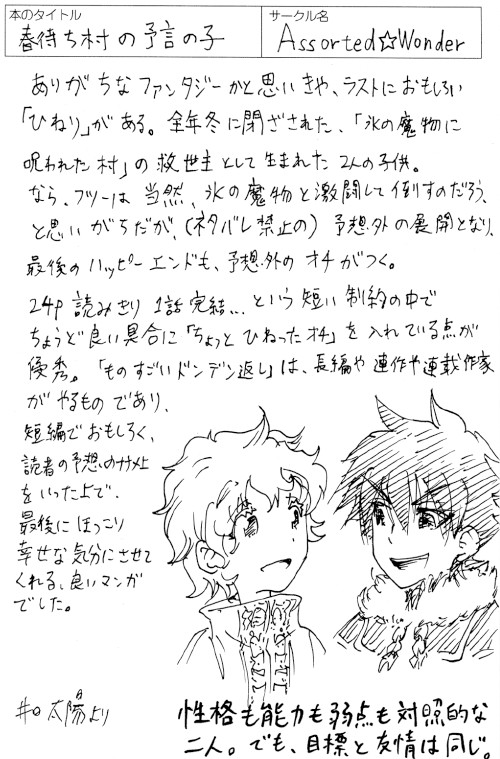 本のタイトル
春待ち村の予言の子
サークル名
Assorted☆Wonder
ありがちなファンタジーかと思いきや、ラストにおもしろい
「ひねり」がある。全年冬に閉ざされた、「氷の魔物に
呪われた村」の救世主として生まれた2人の子供。
なら、フツーは当然、氷の魔物と激闘して倒すのだろう、
と思いがちだが、(ネタバレ禁止の)予想外の展開となり、
最後のハッピーエンドも、予想外のオチがつく。
24p読みきり1話完結…という短い制約の中で
ちょうど良い具合に「ちょっとひねったオチ」を入れている点が
優秀。「ものすごいドンデン返し」は、長編や連作や連載作家
がやるものであり、
短編でおもしろく、
読者の予想のナナメ上
をいった上で、
最後にほっこり
幸せな気分にさせて
くれる、良いマンガ
でした。
井口太陽より
性格も能力も弱点も対照的な
二人。でも、目標と友情は同じ。